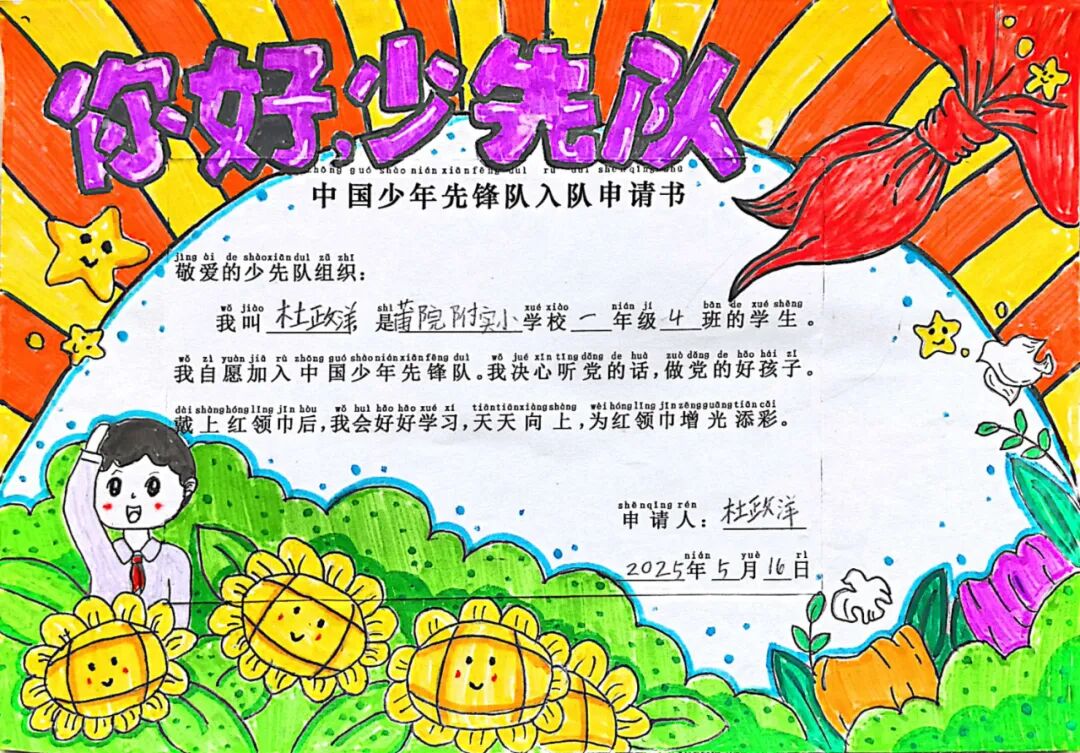 你好,少先队
zhōng guó shào nián xiān fēng duì rù duì shēn qǐng shū
中国少年先锋队入队申请书
jìng ài de shàoxiānduì zǔ zhī
敬爱的少先队组织：
wǒ jiào shì xué xiào nián jí bān de xué shēng
我叫杜政洋是莆院附实小学校一年级4班的学生。
wǒ zì yuàn jiā rù zhōng guó shào nián xiān fēng duì wǒ jué xīn tīng dǎng de huà zuò dǎng de hǎo hái zǐ
我自愿加入中国少年先锋队。我决心听党的话,做党的好孩子。
dài shàng hóng lǐng jīn hòu wǒ huì hǎo hǎo xué xí tiān tiān xiàng shàng wèi hóng lǐng jīn zēng guāng tiān cǎi
戴上红领巾后,我会好好学习,天天向上,为红领巾增光添彩。
shēn qǐng rén
申请人：杜政洋
nián yuè rì
2025年5月16日